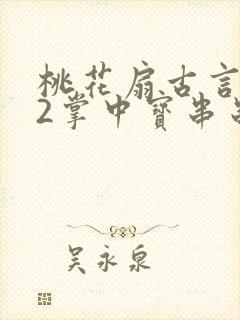 桃花扇古言
2掌中寳串
吴永泉